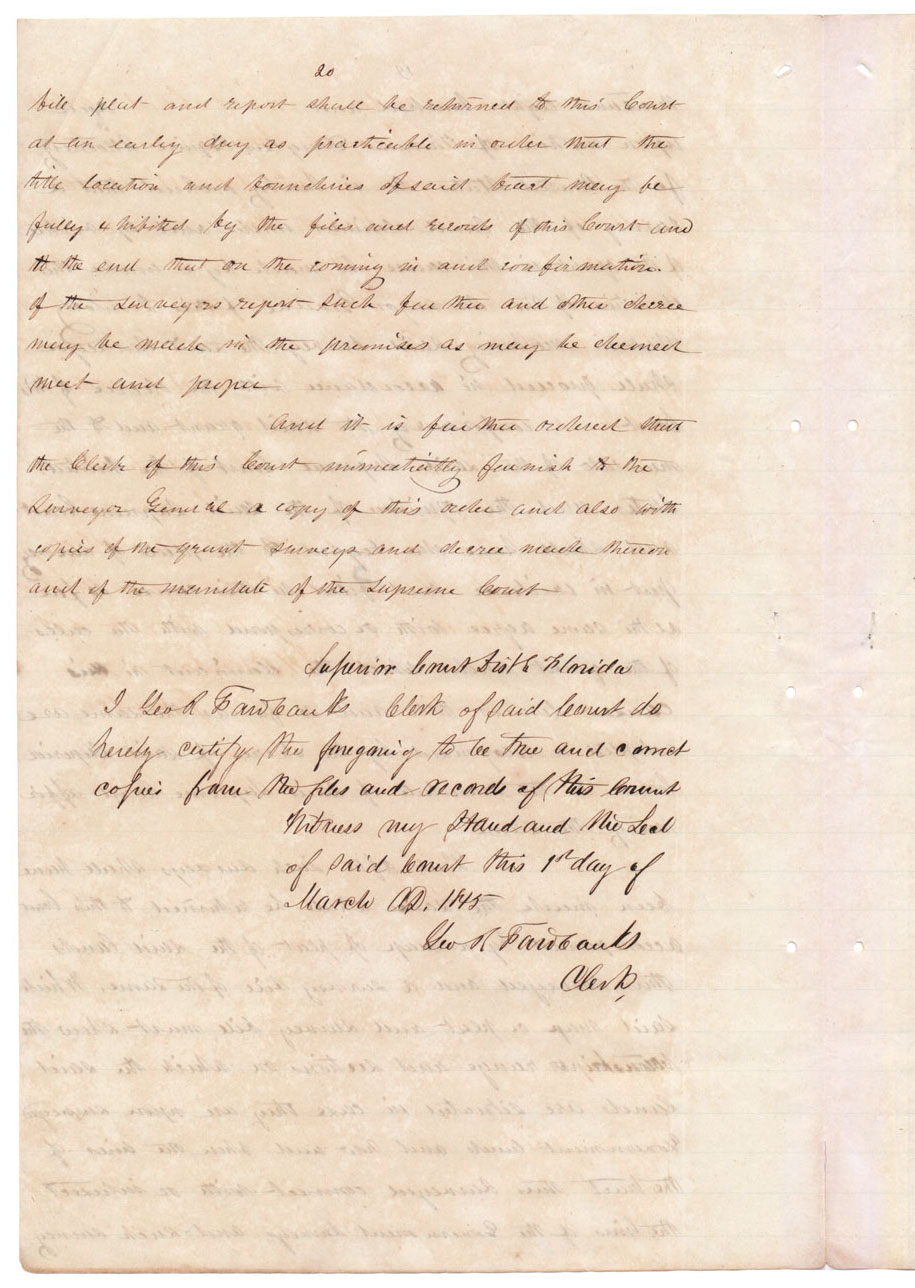 20
bill plat and report shall be returned to this Court
at an early day as practicable in order that the
title location and boundries of said tract may be
fully exhibited by the files and records of this Court and
to the end that on the coming in and confirmation
of the surveyors report such further and other decree
may be made in the premises as may be deemed
meet and proper
And it is further ordered that
the Clerk of this Court immediatly furnish to the
Surveyor General a copy of this order and also with
copies of the grant surveys and decree made thereon
and of the mandate of the Supreme Court
Superior Court Dist E Florida
I Geo R Fairbanks Clerk of said Court do
hereby certify the foregoing to be true and correct
copies from the files and records of this Court
Witness my Hand and the Seal
of said Court this 1st day of
March AD. 1845
Geo R Fairbanks
Clerk